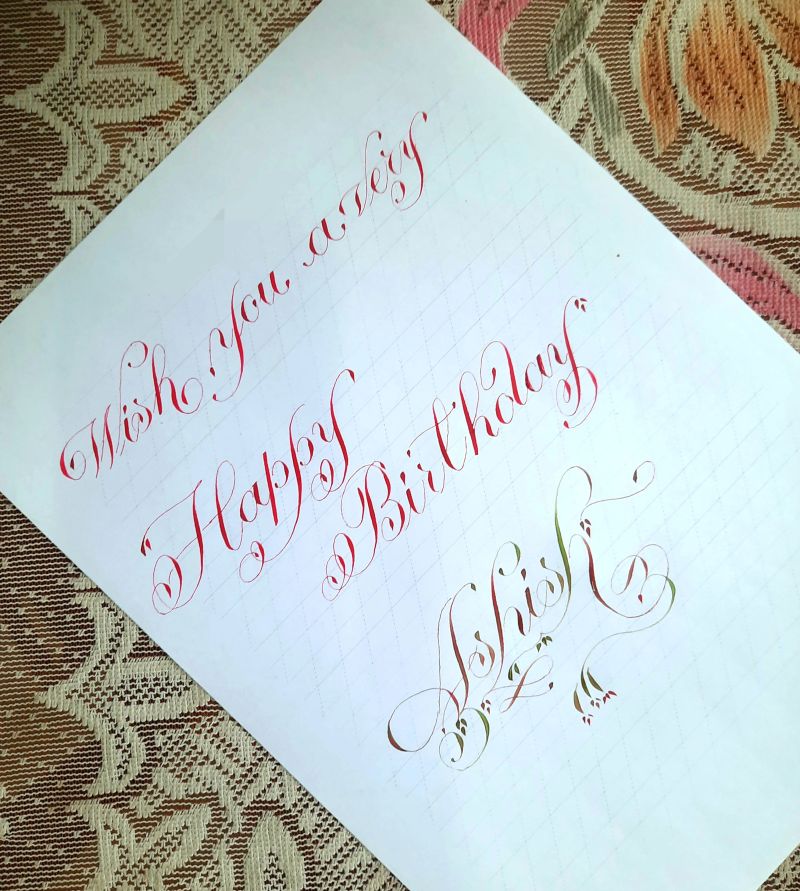 Wish you a very
"Happy Birthday"
Ashish